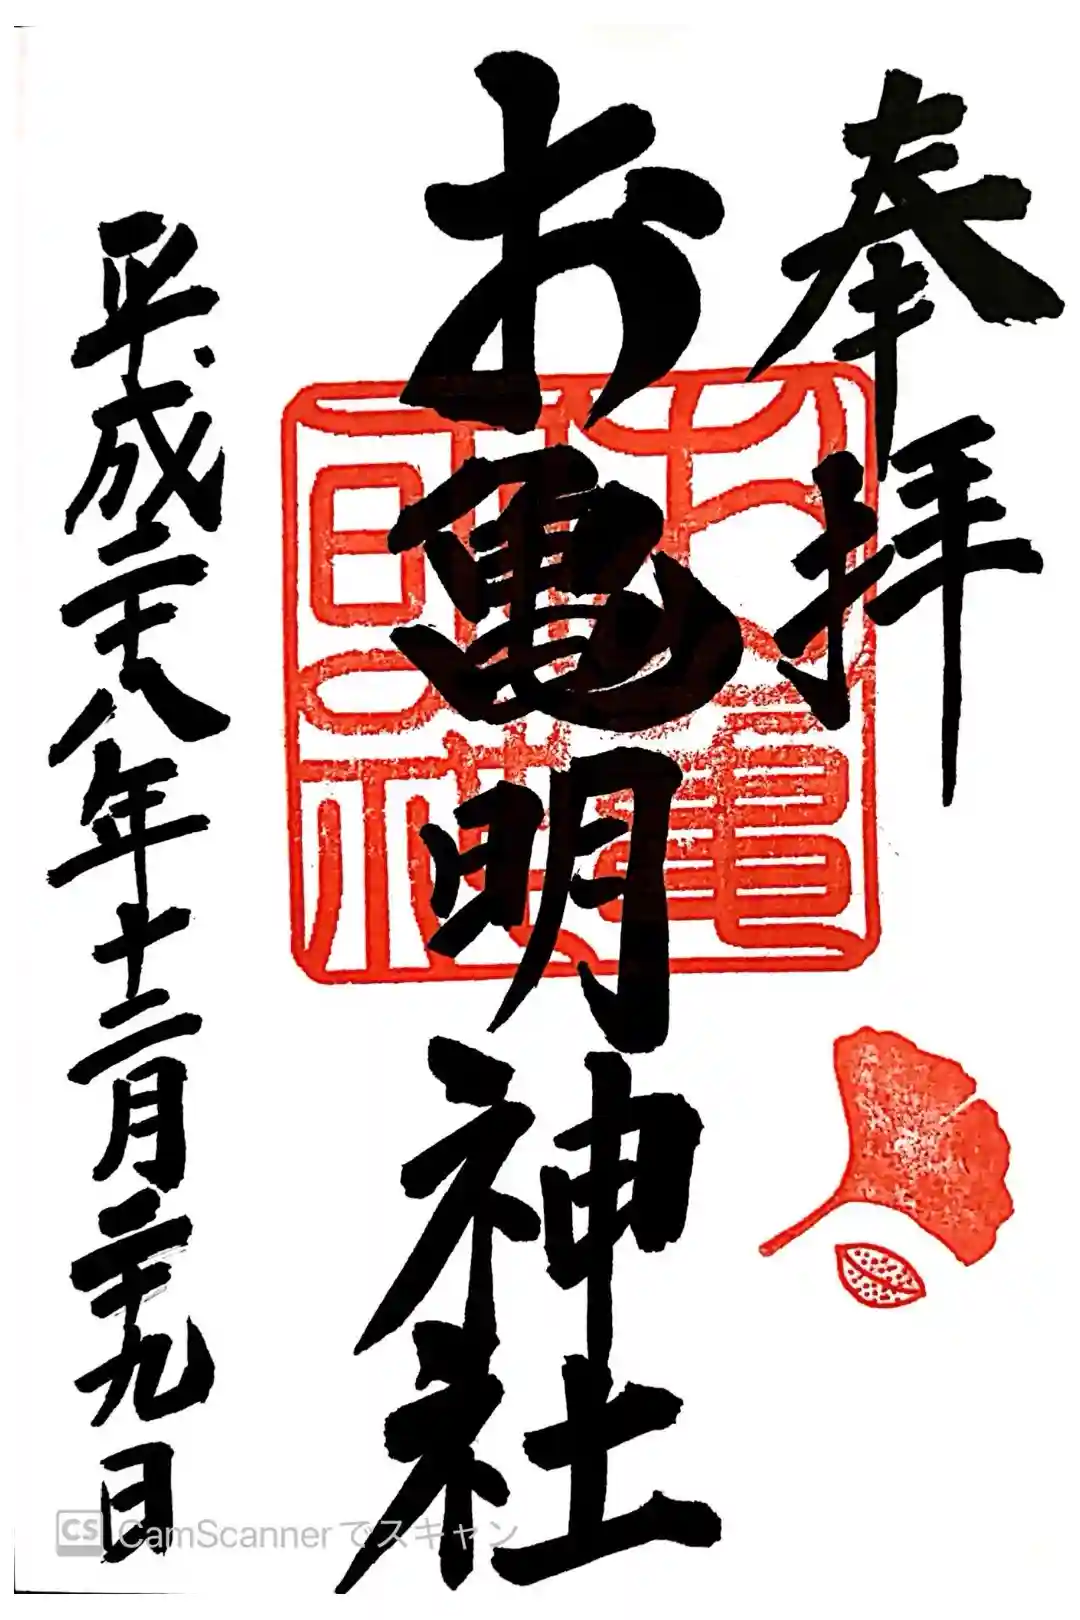 奉拝
お亀明神社
平成二十八年十二月二十九日
CS CamScannerでスキャン